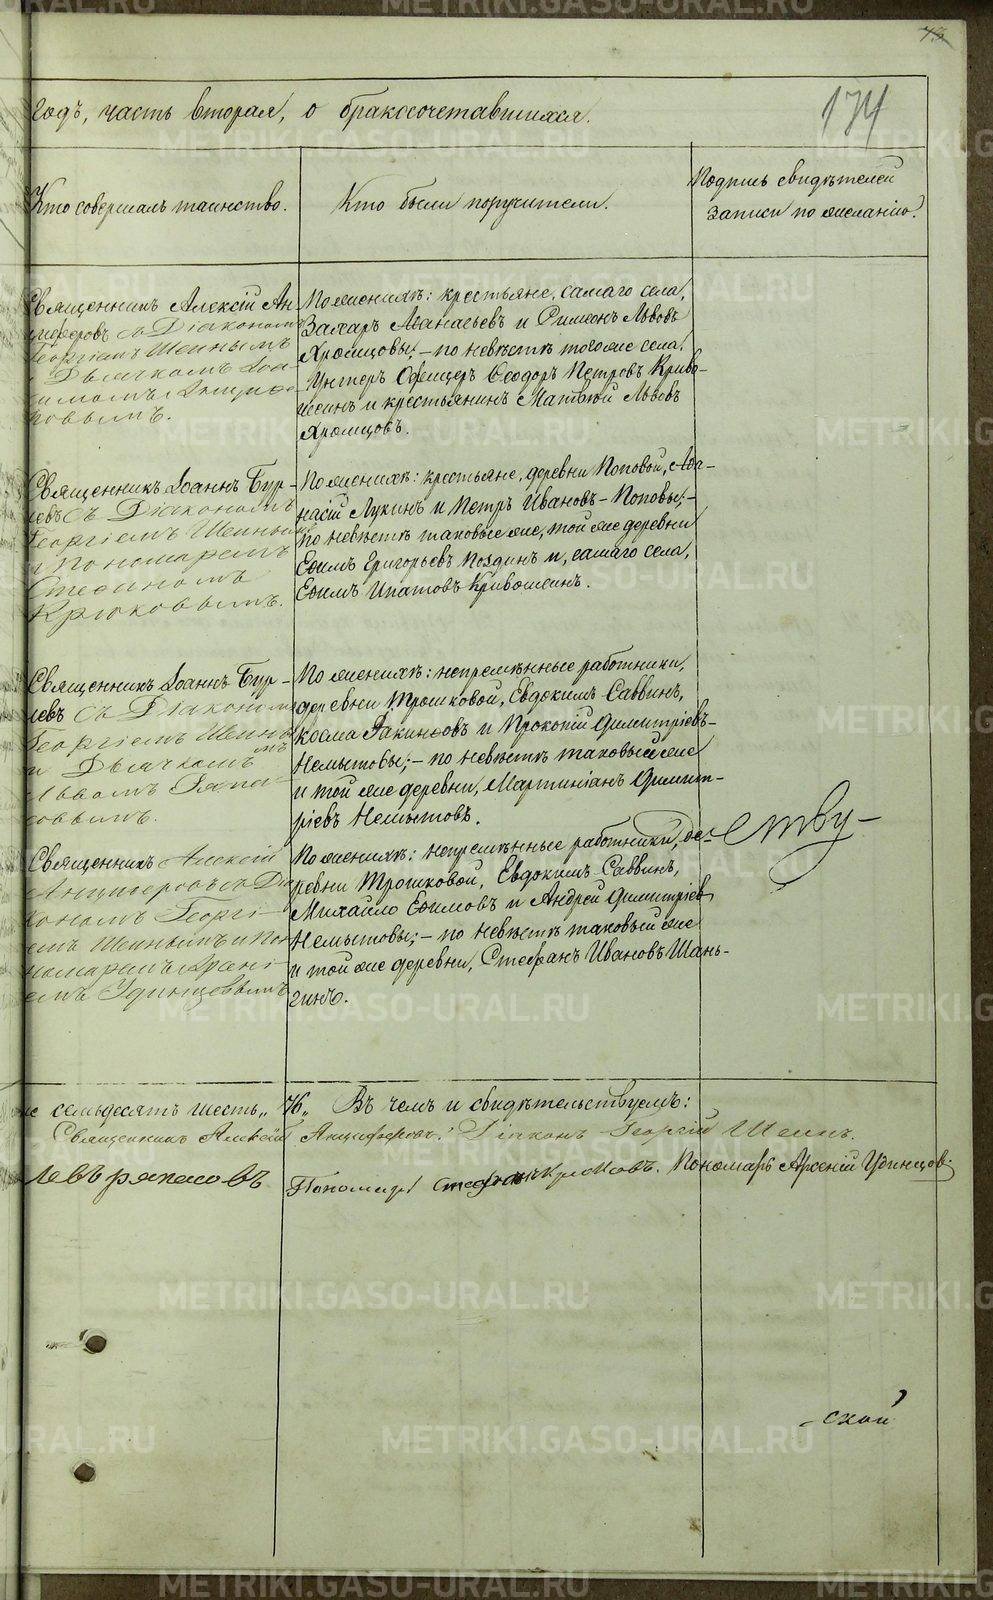 73
174
годъ, часть вторая, о бракосочетавшихся.
Кто совершалъ таинство.
Кто были поручители.
Подпись свидѣтелей
записи по желанію.
Священникъ Алексій Ан-
циферовъ съ Діакономъ
Георгіемъ Шеинымъ
и Дьячкомъ
ковымъ.
По женихѣ: крестьяне, самаго села,
Захаръ Аѳанасьевъ и Симеонъ Львовъ
Хромцовы; – по невѣстѣ того же села,
Унтеръ Офицеръ Ѳеодоръ Петровъ Криво-
шеинъ и крестьянинъ Матѳей Львовъ
Хромцовъ.
Священникъ Іоаннъ Бур-
левъ съ Діакономъ
Георгіемъ Шеинымъ
и Пономаремъ
Стефаномъ
Крюковымъ.
По женихѣ: крестьяне, деревни Поповой, Аѳа-
насій Лукинъ и Петръ Ивановъ – Поповы; –
по невѣстѣ таковые же, той же деревни
Ефимъ Григорьевъ Поздинъ и, самаго села,
Ефимъ Ипатовъ Кривошеинъ.
Священникъ Іоаннъ Бур-
левъ съ Діакономъ
Георгіемъ Шеины-
мъ
и Дьячкомъ
Львомъ Ряпа-
совымъ.
По женихѣ: непремѣнные работники,
деревни Трошковой, Евдокимъ Саввинъ,
Косма Іакинѳовъ и Прокопій Димитріевъ –
Немытовы; – по невѣстѣ таковый же
и той же деревни, Мартиніанъ Димит-
ріевъ Немытовъ.
Священникъ Алексій
Анциферовъ съ Діа-
кономъ Георгі-
емъ Шеинымъ и По-
номаремъ Арсені-
емъ Удинцовымъ
По женихѣ: непремѣнные работники, де-
ревни Трошковой, Евдокимъ Саввинъ,
Михайло Ефимовъ и Андрей Димитріевъ
Немытовы; – по невѣстѣ таковый же
и той же деревни, Стефанъ Ивановъ Шань-
гинъ.
ству –
семьдесятъ шесть „ 76 „ Въ чемъ и свидѣтельствуемъ:
Священникъ Алексій Анциферовъ. Діаконъ Георгій Шеинъ.
Левъ Ряпасовъ Пономарь Стефанъ Крюковъ. Пономарь Арсеній Удинцовъ.
– ской
METRIKI.GASO-URAL.RU